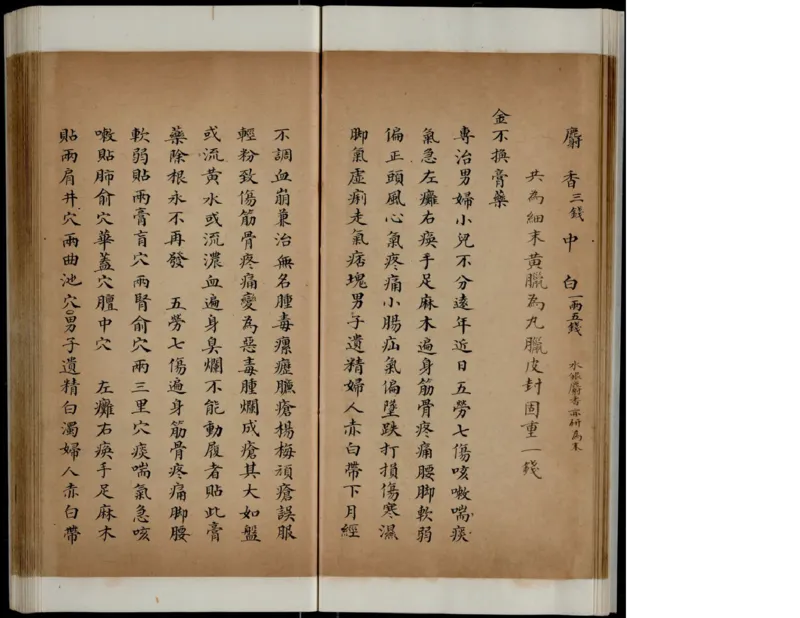 麝香三錢 中白一兩五錢 水銀麝香亦研為末
共為細末黄臘為丸臘皮封固重一錢
金不換膏藥
專治男婦小兒不分遠年近日五勞七傷咳嗽喘痰
氣急左癱右瘓手足麻木遍身筋骨疼痛腰脚軟弱
偏正頭風心氣疼痛小腸疝氣偏墜跌打損傷寒濕
脚氣虛痢走氣痞塊男子遺精婦人赤白帶下月經
不調血崩兼治無名腫毒瘰癧臁瘡楊梅頑瘡誤服
輕粉致傷筋骨疼痛變為惡毒腫爛成瘡其大如盤
或流黄水或流濃血遍身臭爛不能動履者貼此膏
藥除根永不再發 五勞七傷遍身筋骨疼痛脚腰
軟弱貼兩膏肓穴兩腎俞穴兩三里穴痰喘氣急咳
嗽貼肺俞穴華蓋穴膻中穴 左癱右瘓手足麻木
貼兩肩井穴兩曲池穴男子遺精白濁婦人赤白帶